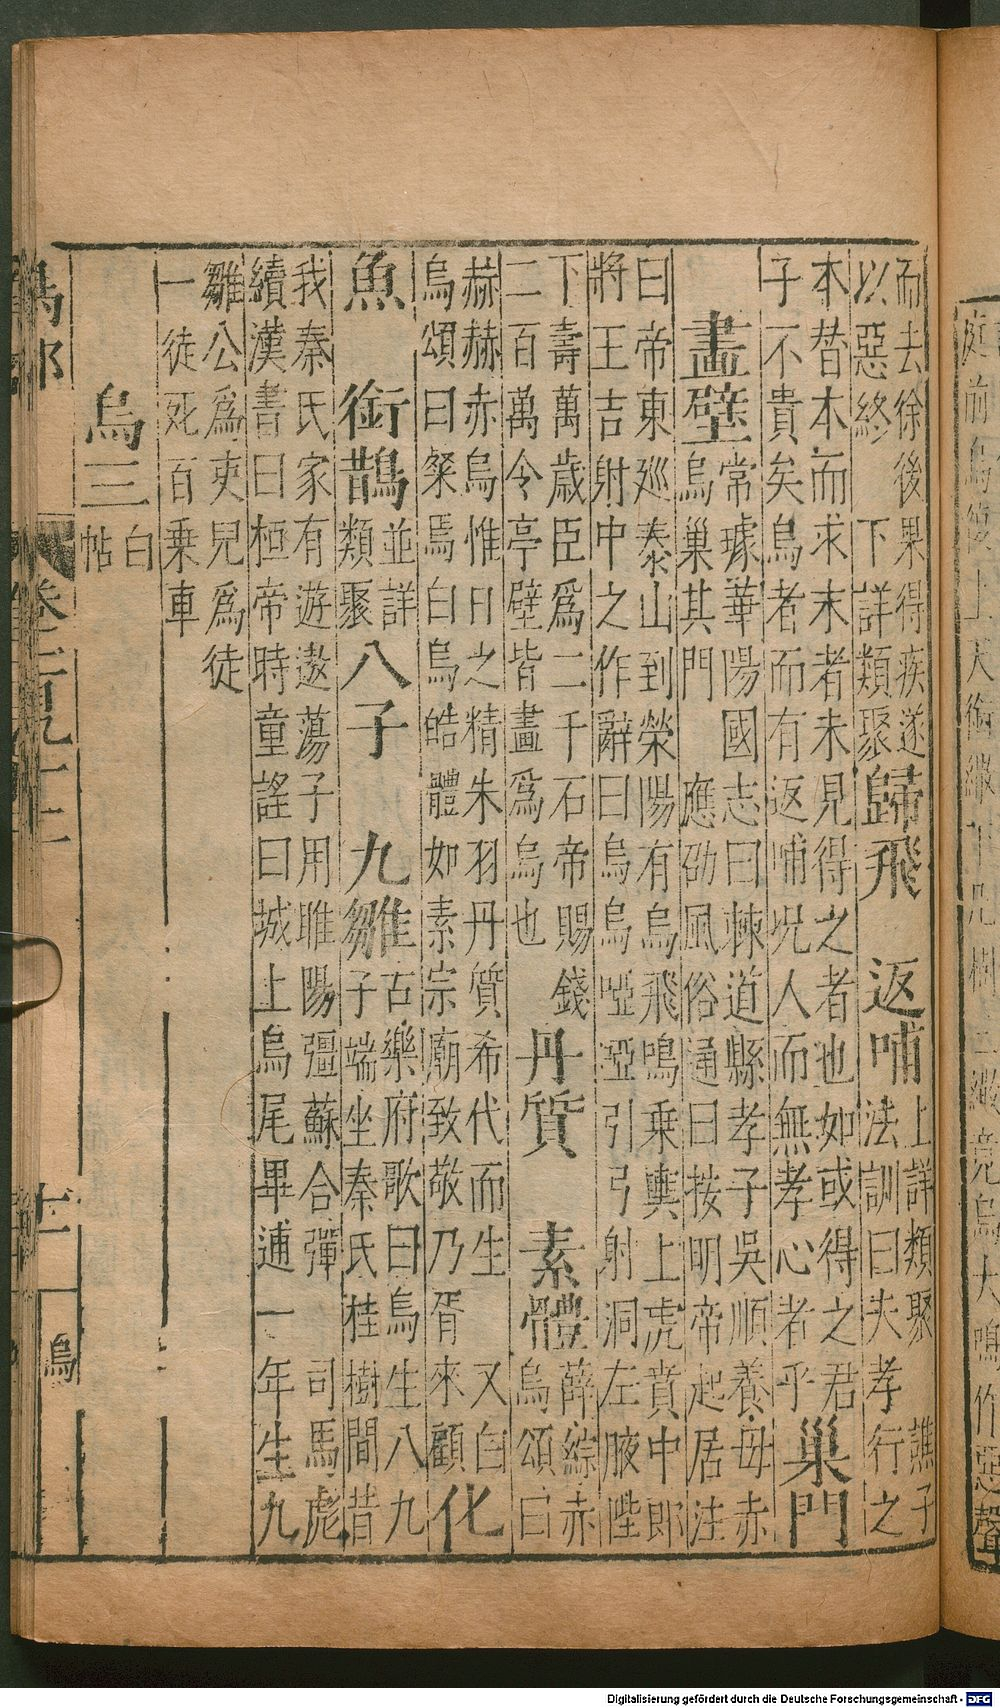 而去徐後果得疾遂
以惡終 下詳類聚
歸飛 返哺
上詳類聚 譙子
法訓曰夫孝行之
本替本而求末者未見得之者也如或得之君
子不貴矣烏者而有返哺況人而無孝心者乎
巢門
畫壁
常璩華陽國志曰棘道縣孝子吳順養母赤
烏巢其門 應劭風俗通曰按明帝起居注
曰帝東廵泰山到榮陽有烏飛鳴乗輿上虎賁中郎
將王吉射中之作辭曰烏烏啞啞引弓射洞左腋陛
下壽萬歲臣爲二千石帝賜錢
二百萬令亭壁皆畫爲烏也
丹質 素體
薛綜赤
烏頌曰
赫赫赤烏惟日之精朱羽丹質希代而生 又白
烏頌曰粲焉白烏皓體如素宗廟致敬乃胥來顧
化
魚 銜鵲
並詳
類聚
八子 九雛
古樂府歌曰烏生八九
子端坐秦氏桂樹間昔
我秦氏家有遊遨蕩子用睢陽彊蘇合彈 司馬彪
續漢書曰桓帝時童謠曰城上烏尾畢逋一年生九
雛公爲吏兒爲徒
一徒死百乗車
烏三
白
帖
烏
Digitalisierung gefördert durch die Deutsche Forschungsgemeinschaft - DFG